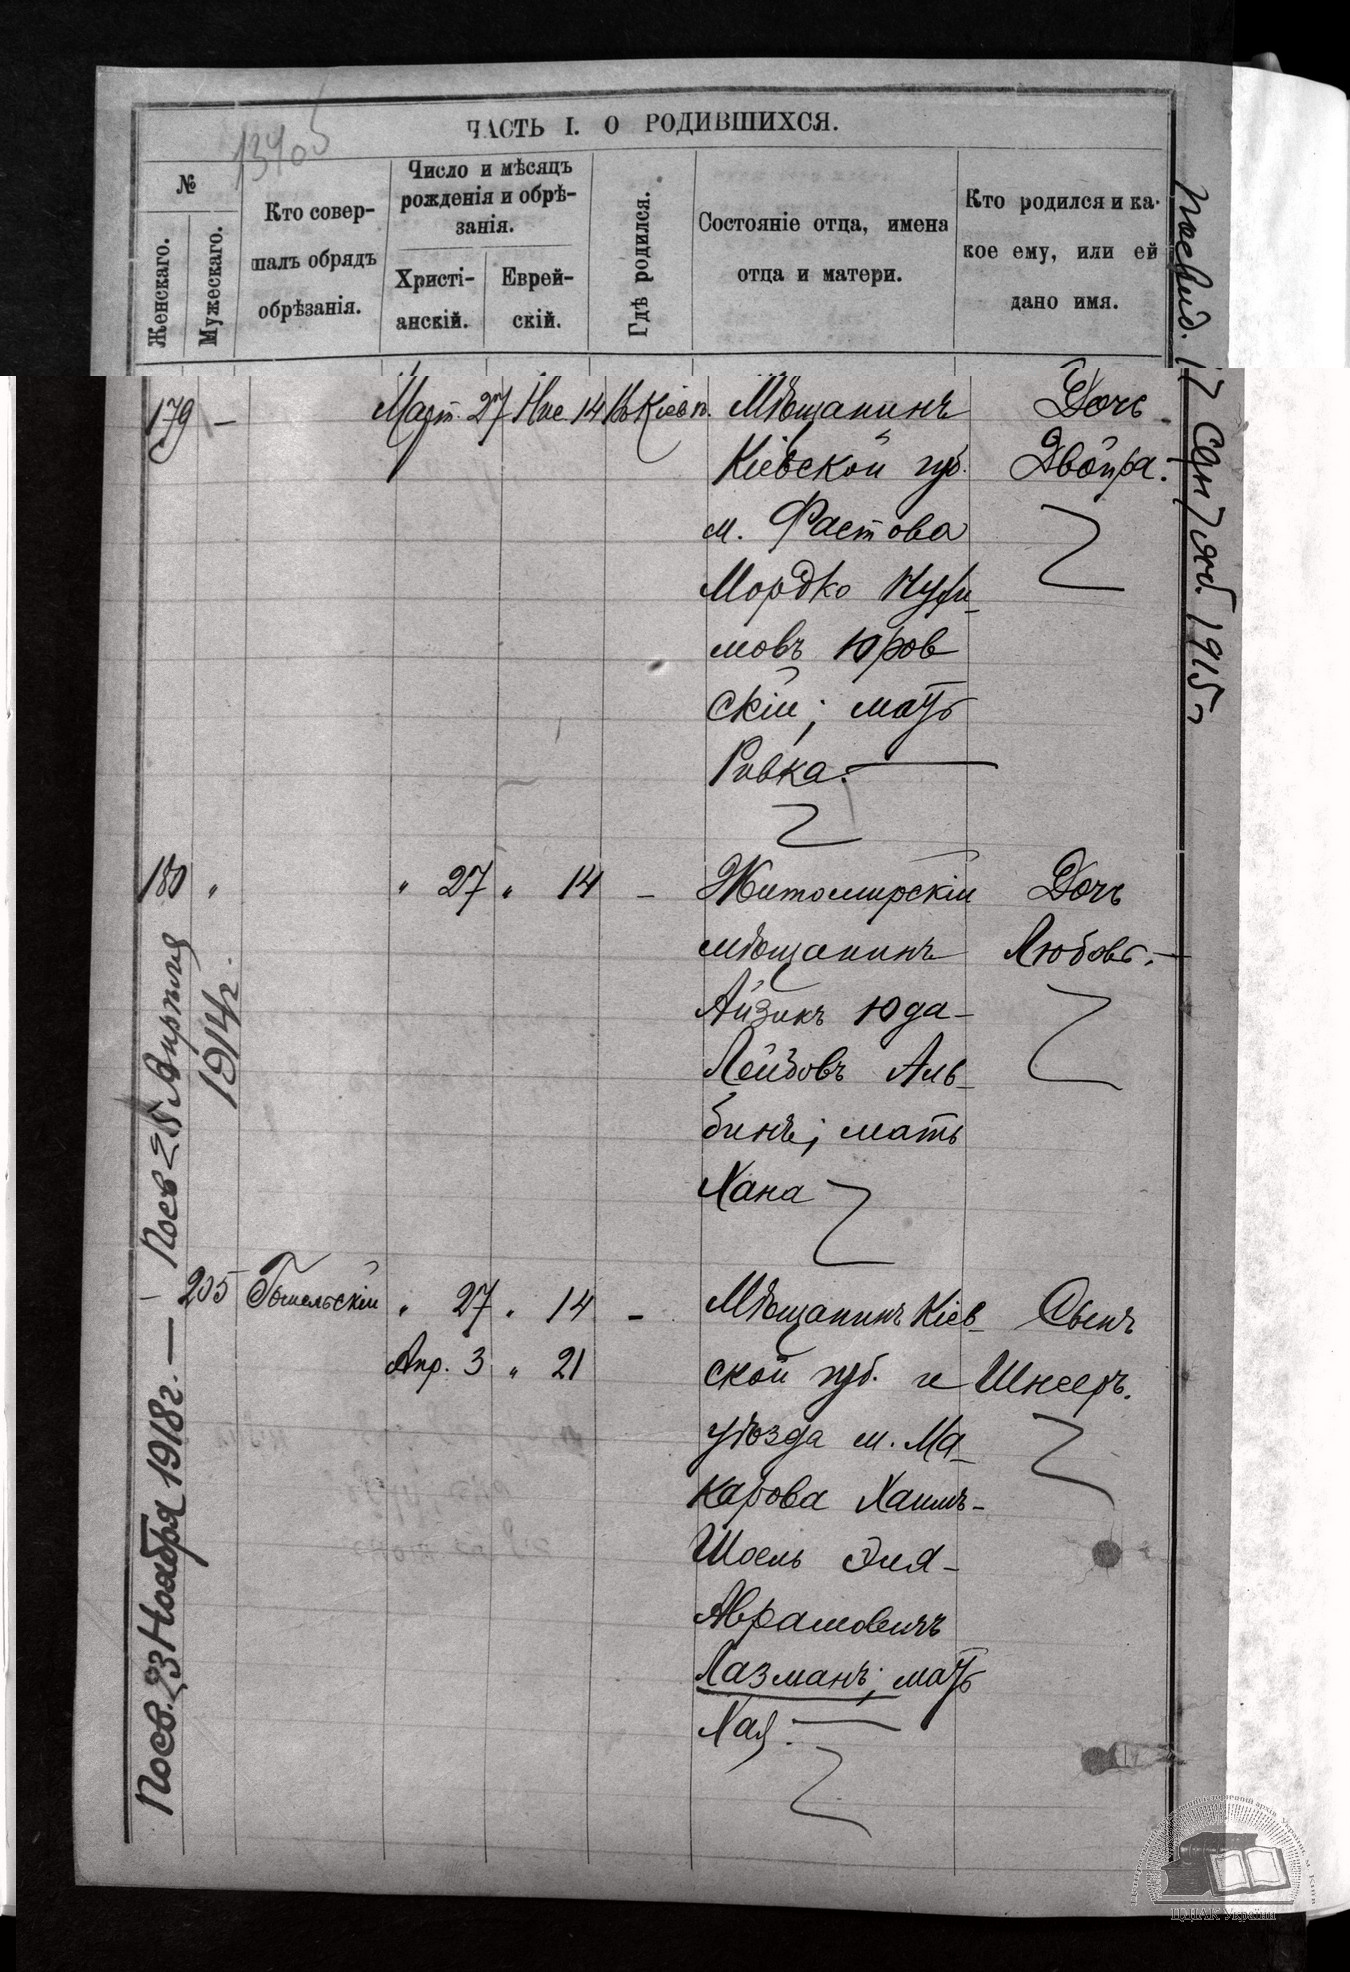 ЧАСТЬ I. О РОДИВШИХСЯ.
№
Женскаго.
Мужескаго.
Кто совер-
шалъ обрядъ
обрѣзанія.
Число и мѣсяцъ
рожденія и обрѣ-
занія.
Христі-
анскій.
Еврей-
скій.
Гдѣ родился.
Состояніе отца, имена
отца и матери.
Кто родился и ка-
кое ему, или ей
дано имя.
179 —
Март. 27 Нис 14 Въ Кіевѣ.
Мѣщанинъ
Кіевской губ.
м. Фастова
Мордко
мовъ Юров
скій; мать
Ривка.
Дочь
Двойра.
180 "
" 27 " 14 —
Житомирскій
мѣщанинъ
Айзикъ Юда-
Лейзовъ Аль-
бинъ; мать
Хана
Дочь
Любовь.
— 205 Гомельскій " 27 " 14 —
Апр. 3 " 21
Мѣщанинъ Кіев-
ской губ. и
уѣзда м. Ма-
карова Хаимъ-
Шоель Эля-
Аврамовичъ
Лазманъ; мать
Хая.
Сынъ
Шнееръ.
Посв. 23 Ноября 1918 г. — Посв 25 Апрѣля
1914 г.
Сентяб. 1915 г
ЦДІАК України